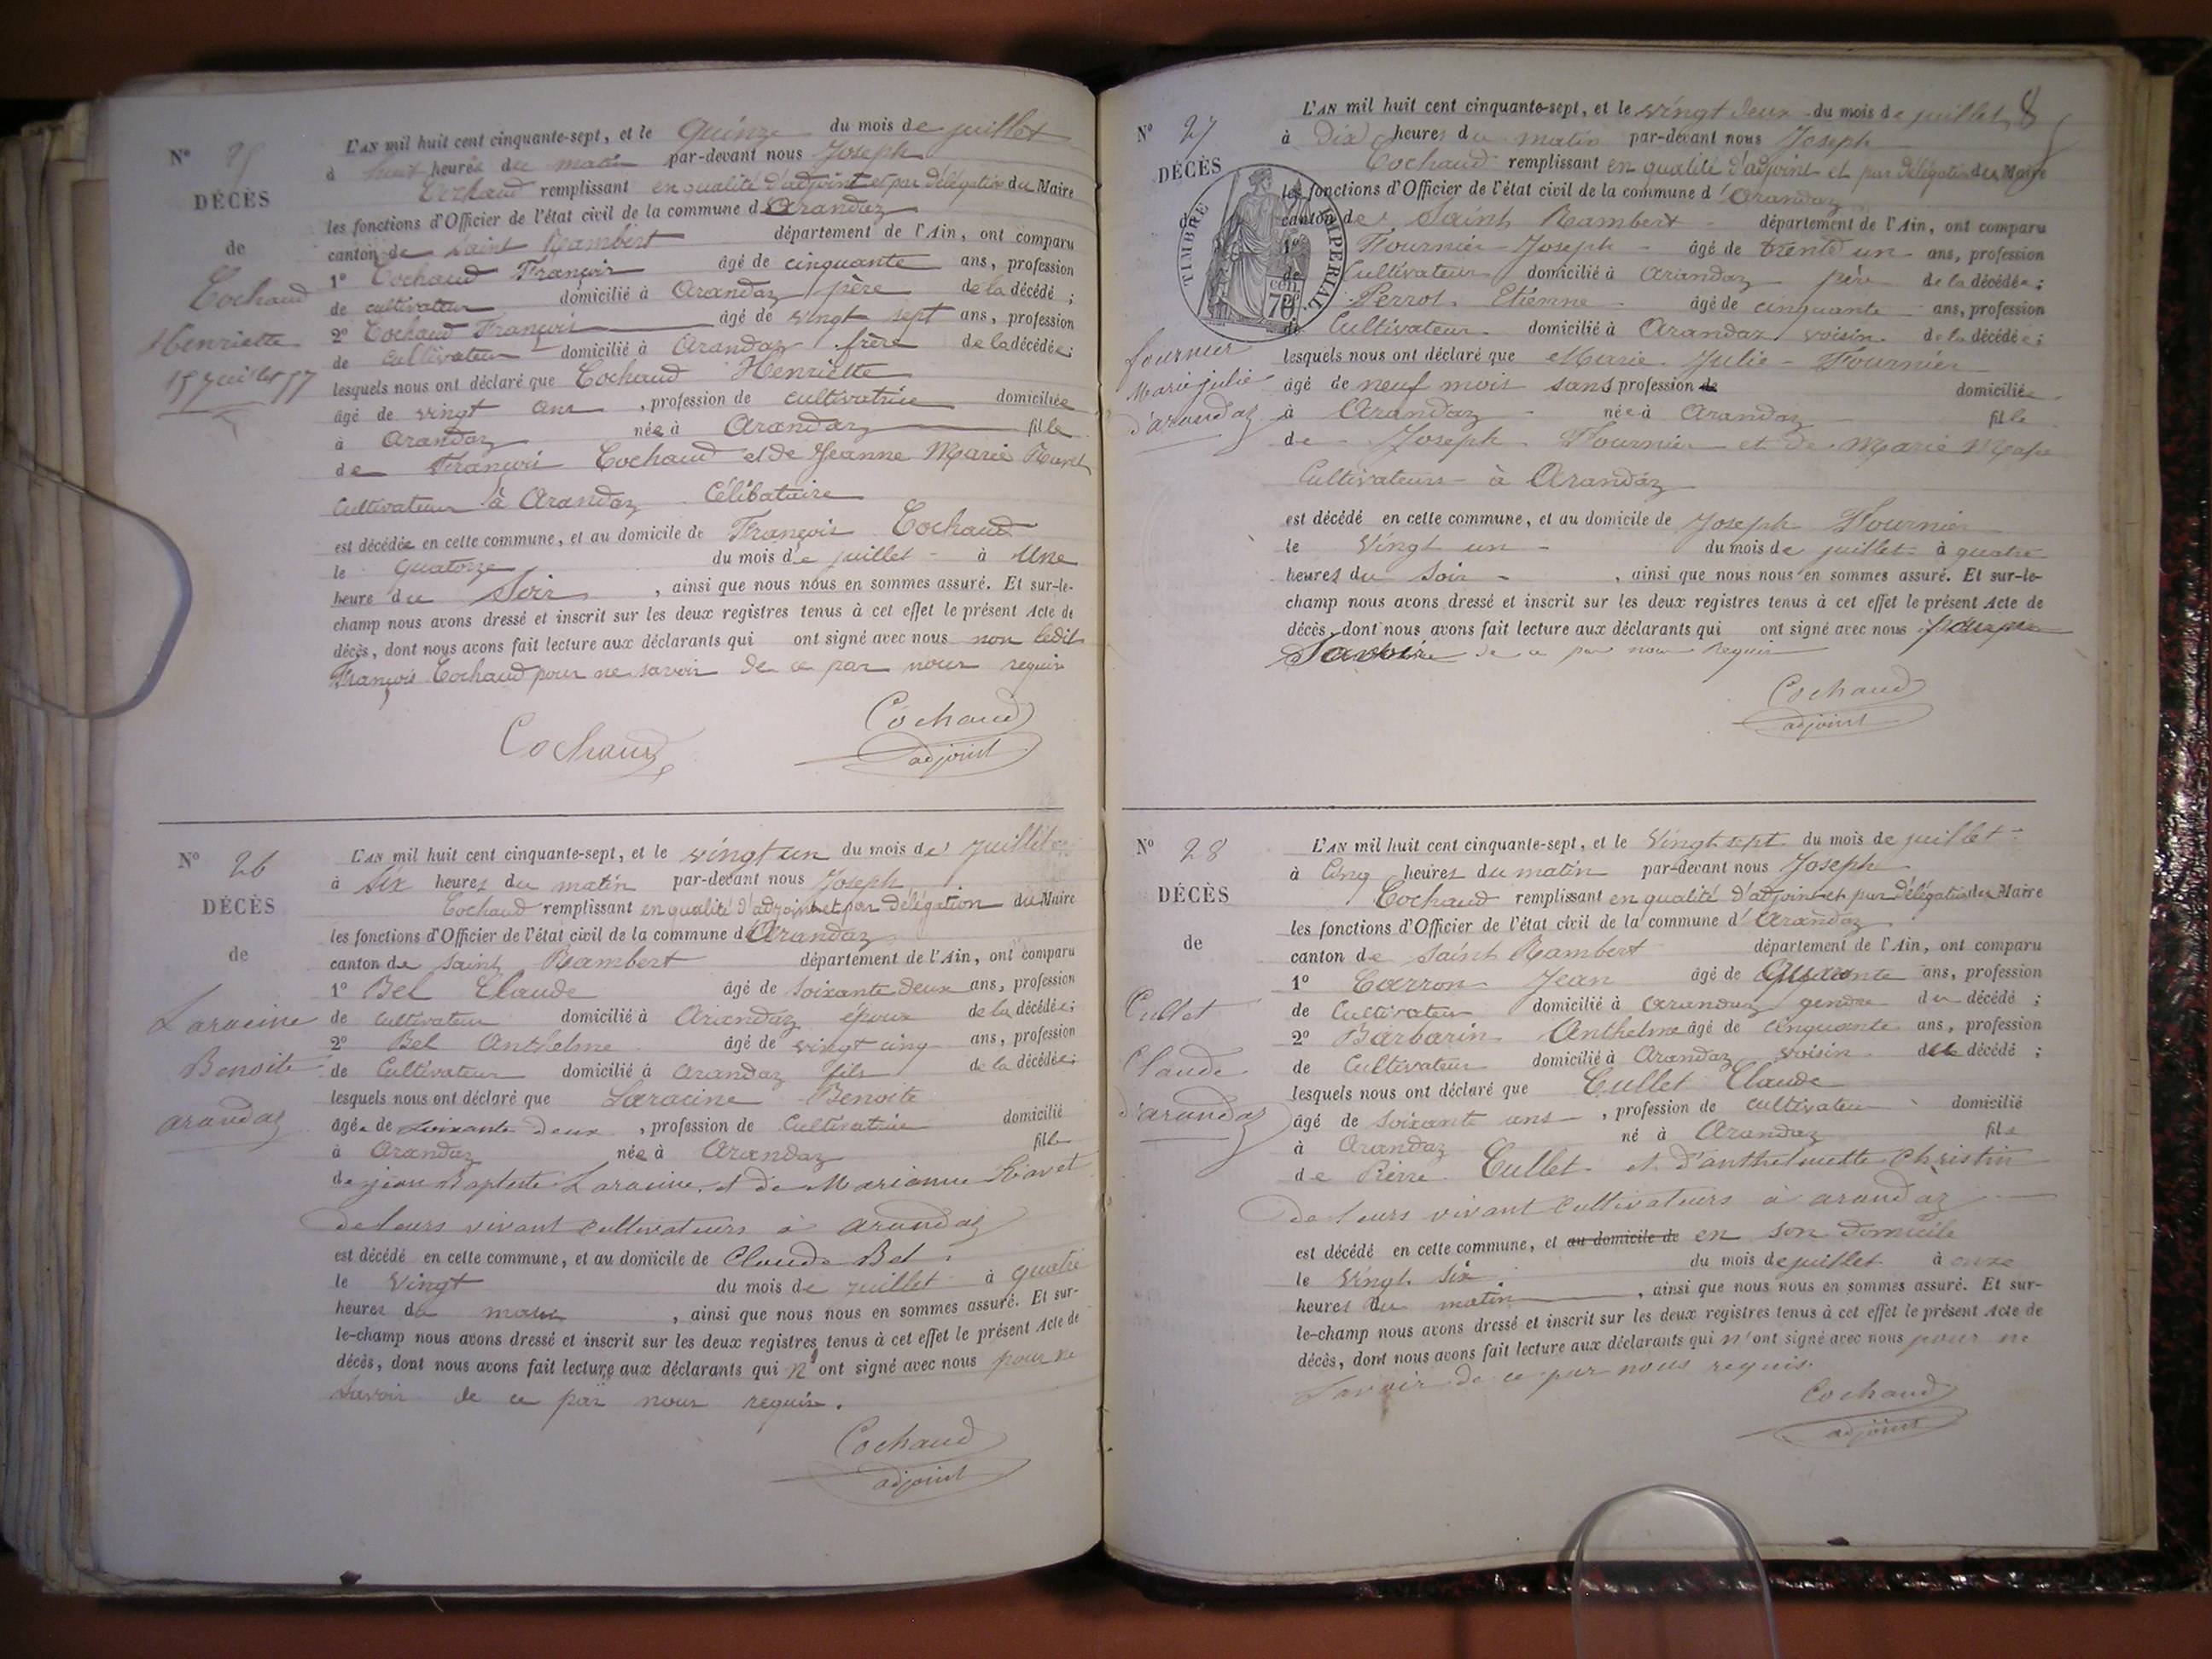 N° 25
DÉCÈS
de
Cochaud
Henriette
15 Juillet 57
L'AN mil huit cent cinquante-sept, et le Quinze du mois de juillet
à huit heures du matin par-devant nous Joseph
Cochaud remplissant en qualité d'adjoint et par délégation du Maire
les fonctions d'Officier de l'état civil de la commune d'Arandaz
canton de Saint Rambert département de l'Ain, ont comparu
1° Cochaud François âgé de cinquante ans, profession
de cultivateur domicilié à Arandaz père de la décédé ;
2° Cochaud François âgé de vingt sept ans, profession
de cultivateur domicilié à Arandaz frère de la décédée ;
lesquels nous ont déclaré que Cochaud Henriette
âgé de vingt ans , profession de cultivatrice domiciliée
à Arandaz née à Arandaz fille
de François Cochaud et de Jeanne Marie
Cultivateurs à Arandaz Célibataire
est décédée en cette commune, et au domicile de François Cochaud
le Quatorze du mois de juillet à Une
heure du Soir , ainsi que nous nous en sommes assuré. Et sur-le-
champ nous avons dressé et inscrit sur les deux registres tenus à cet effet le présent Acte de
décès, dont nous avons fait lecture aux déclarants qui ont signé avec nous non ledit
François Cochaud pour ne savoir de ce par nous requis
Cochaud
Cochaud
adjoint
N° 26
DÉCÈS
de
Laracine
Benoite
arandaz
L'AN mil huit cent cinquante-sept, et le vingt un du mois de juillet
à Six heures du matin par-devant nous Joseph
Cochaud remplissant en qualité d'adjoint et par délégation du Maire
les fonctions d'Officier de l'état civil de la commune d'Arandaz
canton de Saint Rambert département de l'Ain, ont comparu
1° Bel Claude âgé de soixante deux ans, profession
de cultivateur domicilié à Arandaz époux de la décédée ;
2° Bel Anthelme âgé de vingt cinq ans, profession
de Cultivateur domicilié à Arandaz fils de la décédée ;
lesquels nous ont déclaré que Laracine Benoite
âgée de soixante deux , profession de Cultivatrice domicilié
à Arandaz née à Arandaz fille
de jean Baptiste Laracine et de Marianne
de leurs vivant cultivateurs à arandaz
est décédé en cette commune, et au domicile de Claude Bel
le Vingt du mois de juillet à quatre
heures du matin , ainsi que nous nous en sommes assuré. Et sur-
le-champ nous avons dressé et inscrit sur les deux registres tenus à cet effet le présent Acte de
décès, dont nous avons fait lecture aux déclarants qui n'ont signé avec nous pour ne
savoir de ce par nous requis.
Cochaud
adjoint
8
N° 27
DÉCÈS
de
TIMBRE IMPÉRIAL
fournier
Marie julie
d'arandaz
L'AN mil huit cent cinquante-sept, et le vingt deux du mois de juillet
à Dix heures du matin par-devant nous Joseph
Cochaud remplissant en qualité d'adjoint et par délégation du Maire
les fonctions d'Officier de l'état civil de la commune d'Arandaz
canton de Saint Rambert département de l'Ain, ont comparu
1° Fournier Joseph âgé de trente un ans, profession
de Cultivateur domicilié à Arandaz père de la décédée ;
Perrot Etienne âgé de cinquante ans, profession
de Cultivateur domicilié à Arandaz voisin de la décédée ;
lesquels nous ont déclaré que Marie Julie Fournier
âgé de neuf mois sans profession de domiciliée
à Arandaz née à Arandaz fille
de Joseph Fournier et de Marie
Cultivateurs à Arandaz
est décédé en cette commune, et au domicile de Joseph Fournier
le Vingt un du mois de juillet à quatre
heures du Soir , ainsi que nous nous en sommes assuré. Et sur-le-
champ nous avons dressé et inscrit sur les deux registres tenus à cet effet le présent Acte de
décès, dont nous avons fait lecture aux déclarants qui ont signé avec nous
Savoir de ce par nous requis
Cochaud
adjoint
N° 28
DÉCÈS
de
Cullet
Claude
d'arandaz
L'AN mil huit cent cinquante-sept, et le Vingt sept du mois de juillet
à Cinq heures du matin par-devant nous Joseph
Cochaud remplissant en qualité d'adjoint et par délégation du Maire
les fonctions d'Officier de l'état civil de la commune d'Arandaz
canton de Saint Rambert département de l'Ain, ont comparu
1° Carron Jean âgé de ans, profession
de Cultivateur domicilié à Arandaz gendre du décédé ;
2° Barbarin Anthelme âgé de cinquante ans, profession
de Cultivateur domicilié à Arandaz voisin du décédé ;
lesquels nous ont déclaré que Cullet Claude
âgé de soixante ans , profession de cultivateur domicilié
à Arandaz né à Arandaz fils
de Pierre Cullet et d'anthelmette Christin
de leurs vivant cultivateurs à arandaz
est décédé en cette commune, et au domicile de en son domicile
le Vingt Six du mois de juillet à onze
heures du matin , ainsi que nous nous en sommes assuré. Et sur-
le-champ nous avons dressé et inscrit sur les deux registres tenus à cet effet le présent Acte de
décès, dont nous avons fait lecture aux déclarants qui n'ont signé avec nous pour ne
Savoir de ce par nous requis.
Cochaud
adjoint